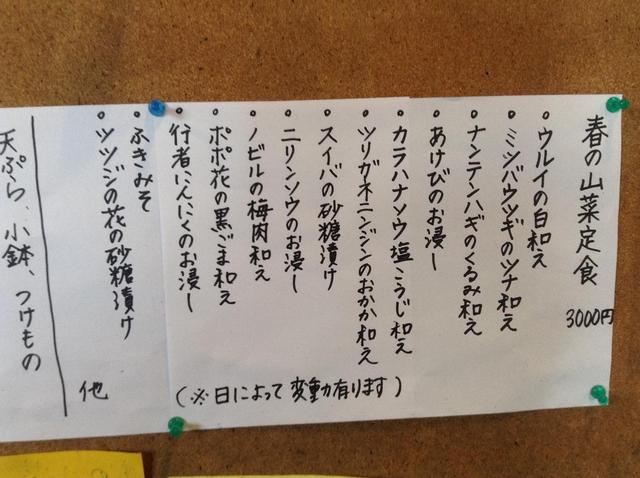 春の山菜定食
3000円
。ウルイの白和え
。ミツバウツギのツナ和え
。ナンテンハギのくるみ和え
。あけびのお浸し
。カラハナソウ塩こうじ和え
。ツリガネニンジンのおかか和え
。スイバの砂糖漬け
。ニリンソウのお浸し
。ノビルの梅肉和え
。ポポ花の黒ごま和え
。行者にんにくのお浸し
。ふきみそ
。ツツジの花の砂糖漬け
他
(※日によって変動有ります)
天ぷら、小鉢、つけもの